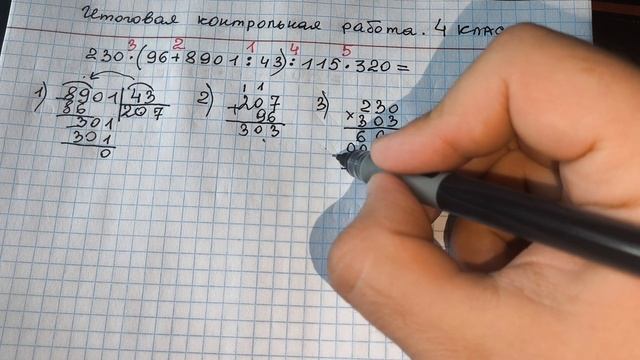 Итоговая контрольная работа. 4 клас
3 2 1 4 5
230·(96+8901:43):115·320=
1) 8901 43 2) 1 1 3) 230
86 207 +207 ×303
301 96 6
301 303
0